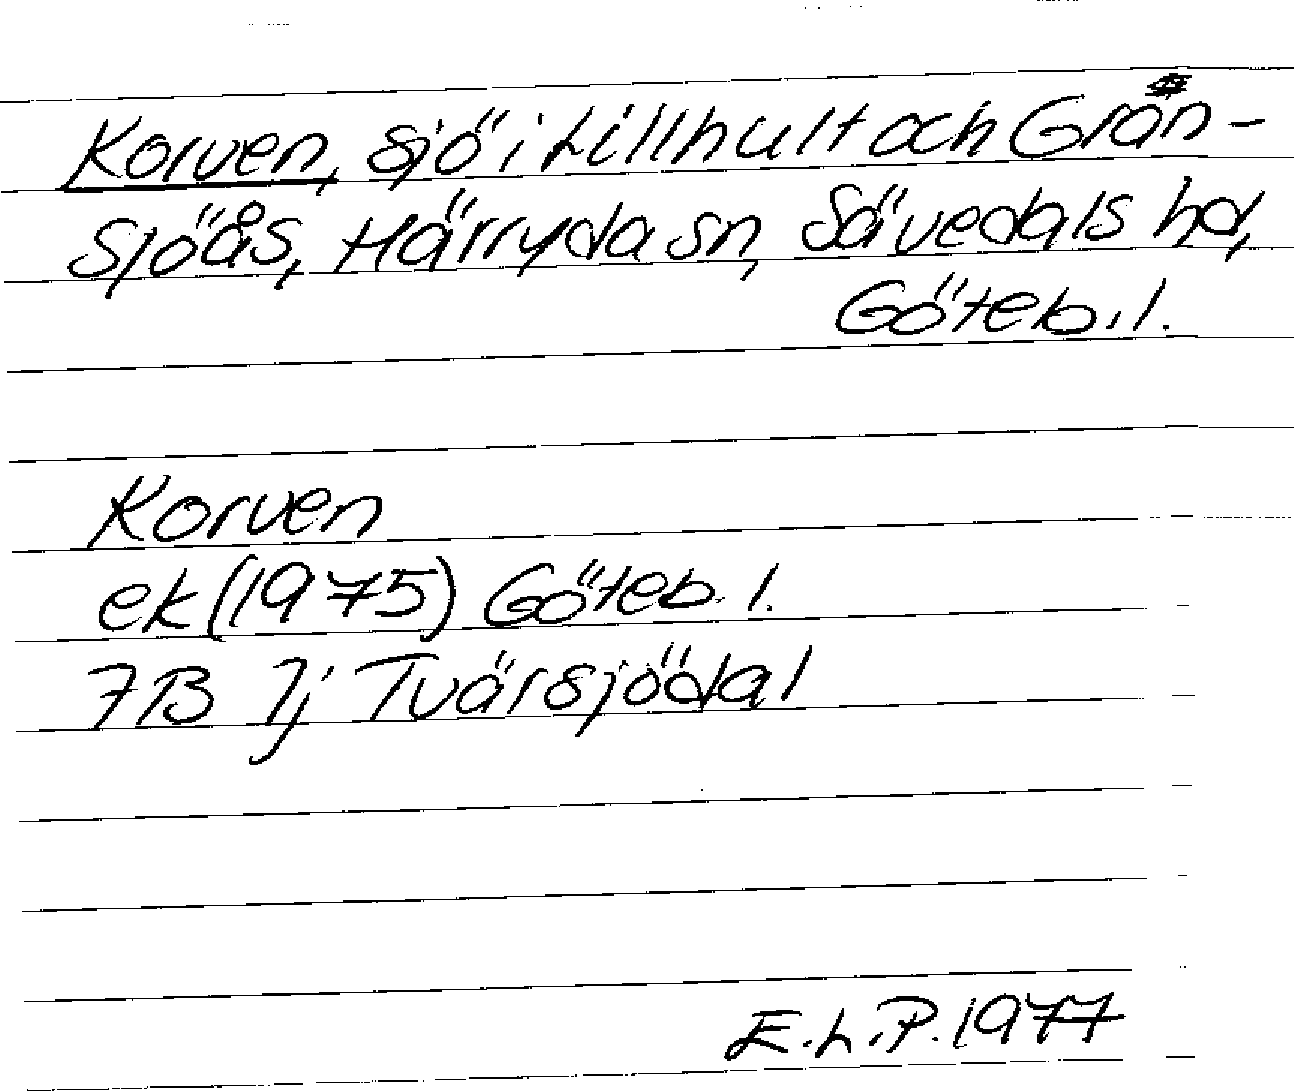 Korven, sjö i Lillhult och Grön-
sjöås, Härryda sn, Sävedals hd,
Göteb. l.
Korven
ek (1975) Göteb. l.
7B 7j Tvärsjödal
E.L.P. 1977